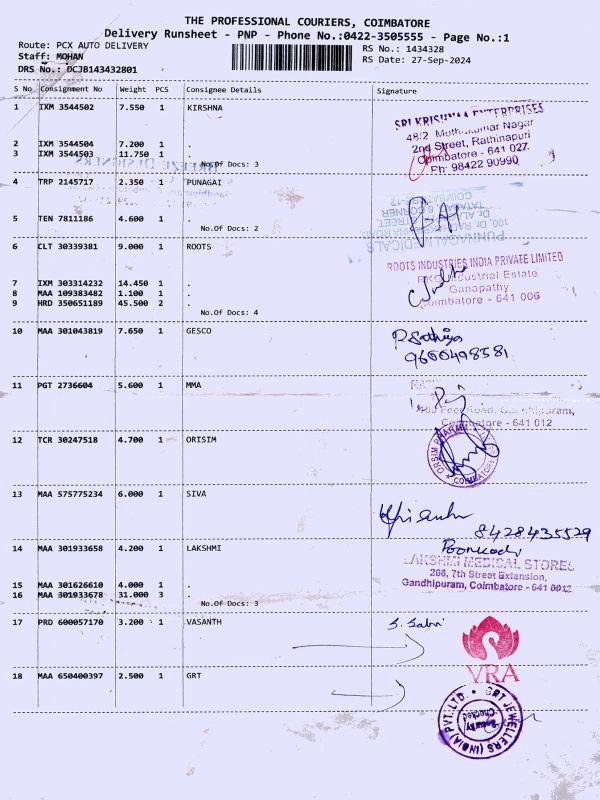 THE PROFESSIONAL COURIERS, COIMBATORE
Delivery Runsheet - PNP - Phone No.:0422-3505555 - Page No.:1
Route: PCX AUTO DELIVERY
RS No.: 1434328
Staff: MOHAN
RS Date: 27-Sep-2024
DRS No.: DCJB143432801
S No Consignment No Weight PCS Consignee Details Signature
1 IXM 3544502 7.550 1 KIRSHNA
SRI KRISHNAA ENTERPRISES
48/2 Muthukumar Nagar
2nd Street, Rathinapuri
Coimbatore - 641 027.
Ph: 98422 90990
2 IXM 3544504 7.200 1 .
3 IXM 3544503 11.750 1 .
No.Of Docs: 3
BREEZE DESIGNERS
4 TRP 2145717 2.350 1 PUNAGAI
5 TEN 7811186 4.600 1 .
No.Of Docs: 2
PUNNAGAI MEDICALS
6 CLT 30339381 9.000 1 ROOTS
ROOTS INDUSTRIES INDIA PRIVATE LIMITED
Industrial Estate
Ganapathy
Coimbatore - 641 006
7 IXM 303314232 14.450 1 .
8 MAA 109383482 1.100 1 .
9 HRD 350651189 45.500 2 .
No.Of Docs: 4
10 MAA 301043819 7.650 1 GESCO
P. Sathiya
9600498581
11 PGT 2736604 5.600 1 MMA
Feet Road, Gandhipuram,
Coimbatore - 641 012
12 TCR 30247518 4.700 1 ORISIM
13 MAA 575775234 6.000 1 SIVA
8428435529
14 MAA 301933658 4.200 1 LAKSHMI
LAKSHMI MEDICAL STORES
268, 7th Street Extension,
Gandhipuram, Coimbatore - 641 0012
15 MAA 301626610 4.000 1 .
16 MAA 301933678 31.000 3 .
No.Of Docs: 3
17 PRD 600057170 3.200 1 VASANTH
S. Sabri
VRA
18 MAA 650400397 2.500 1 GRT
GRT JEWELLERS (INDIA) PVT. LTD.
Security
Checked